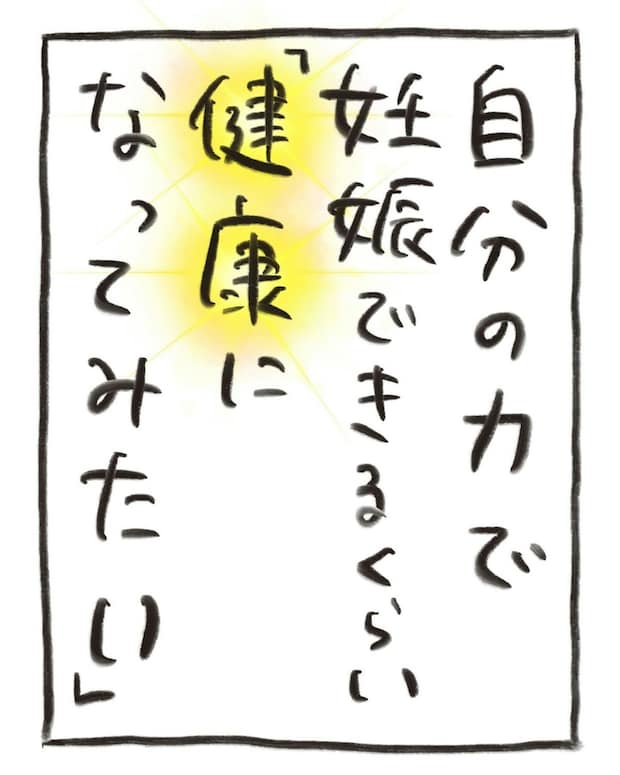 自分の力で
妊娠できるくらい
「健康に
なってみたい」